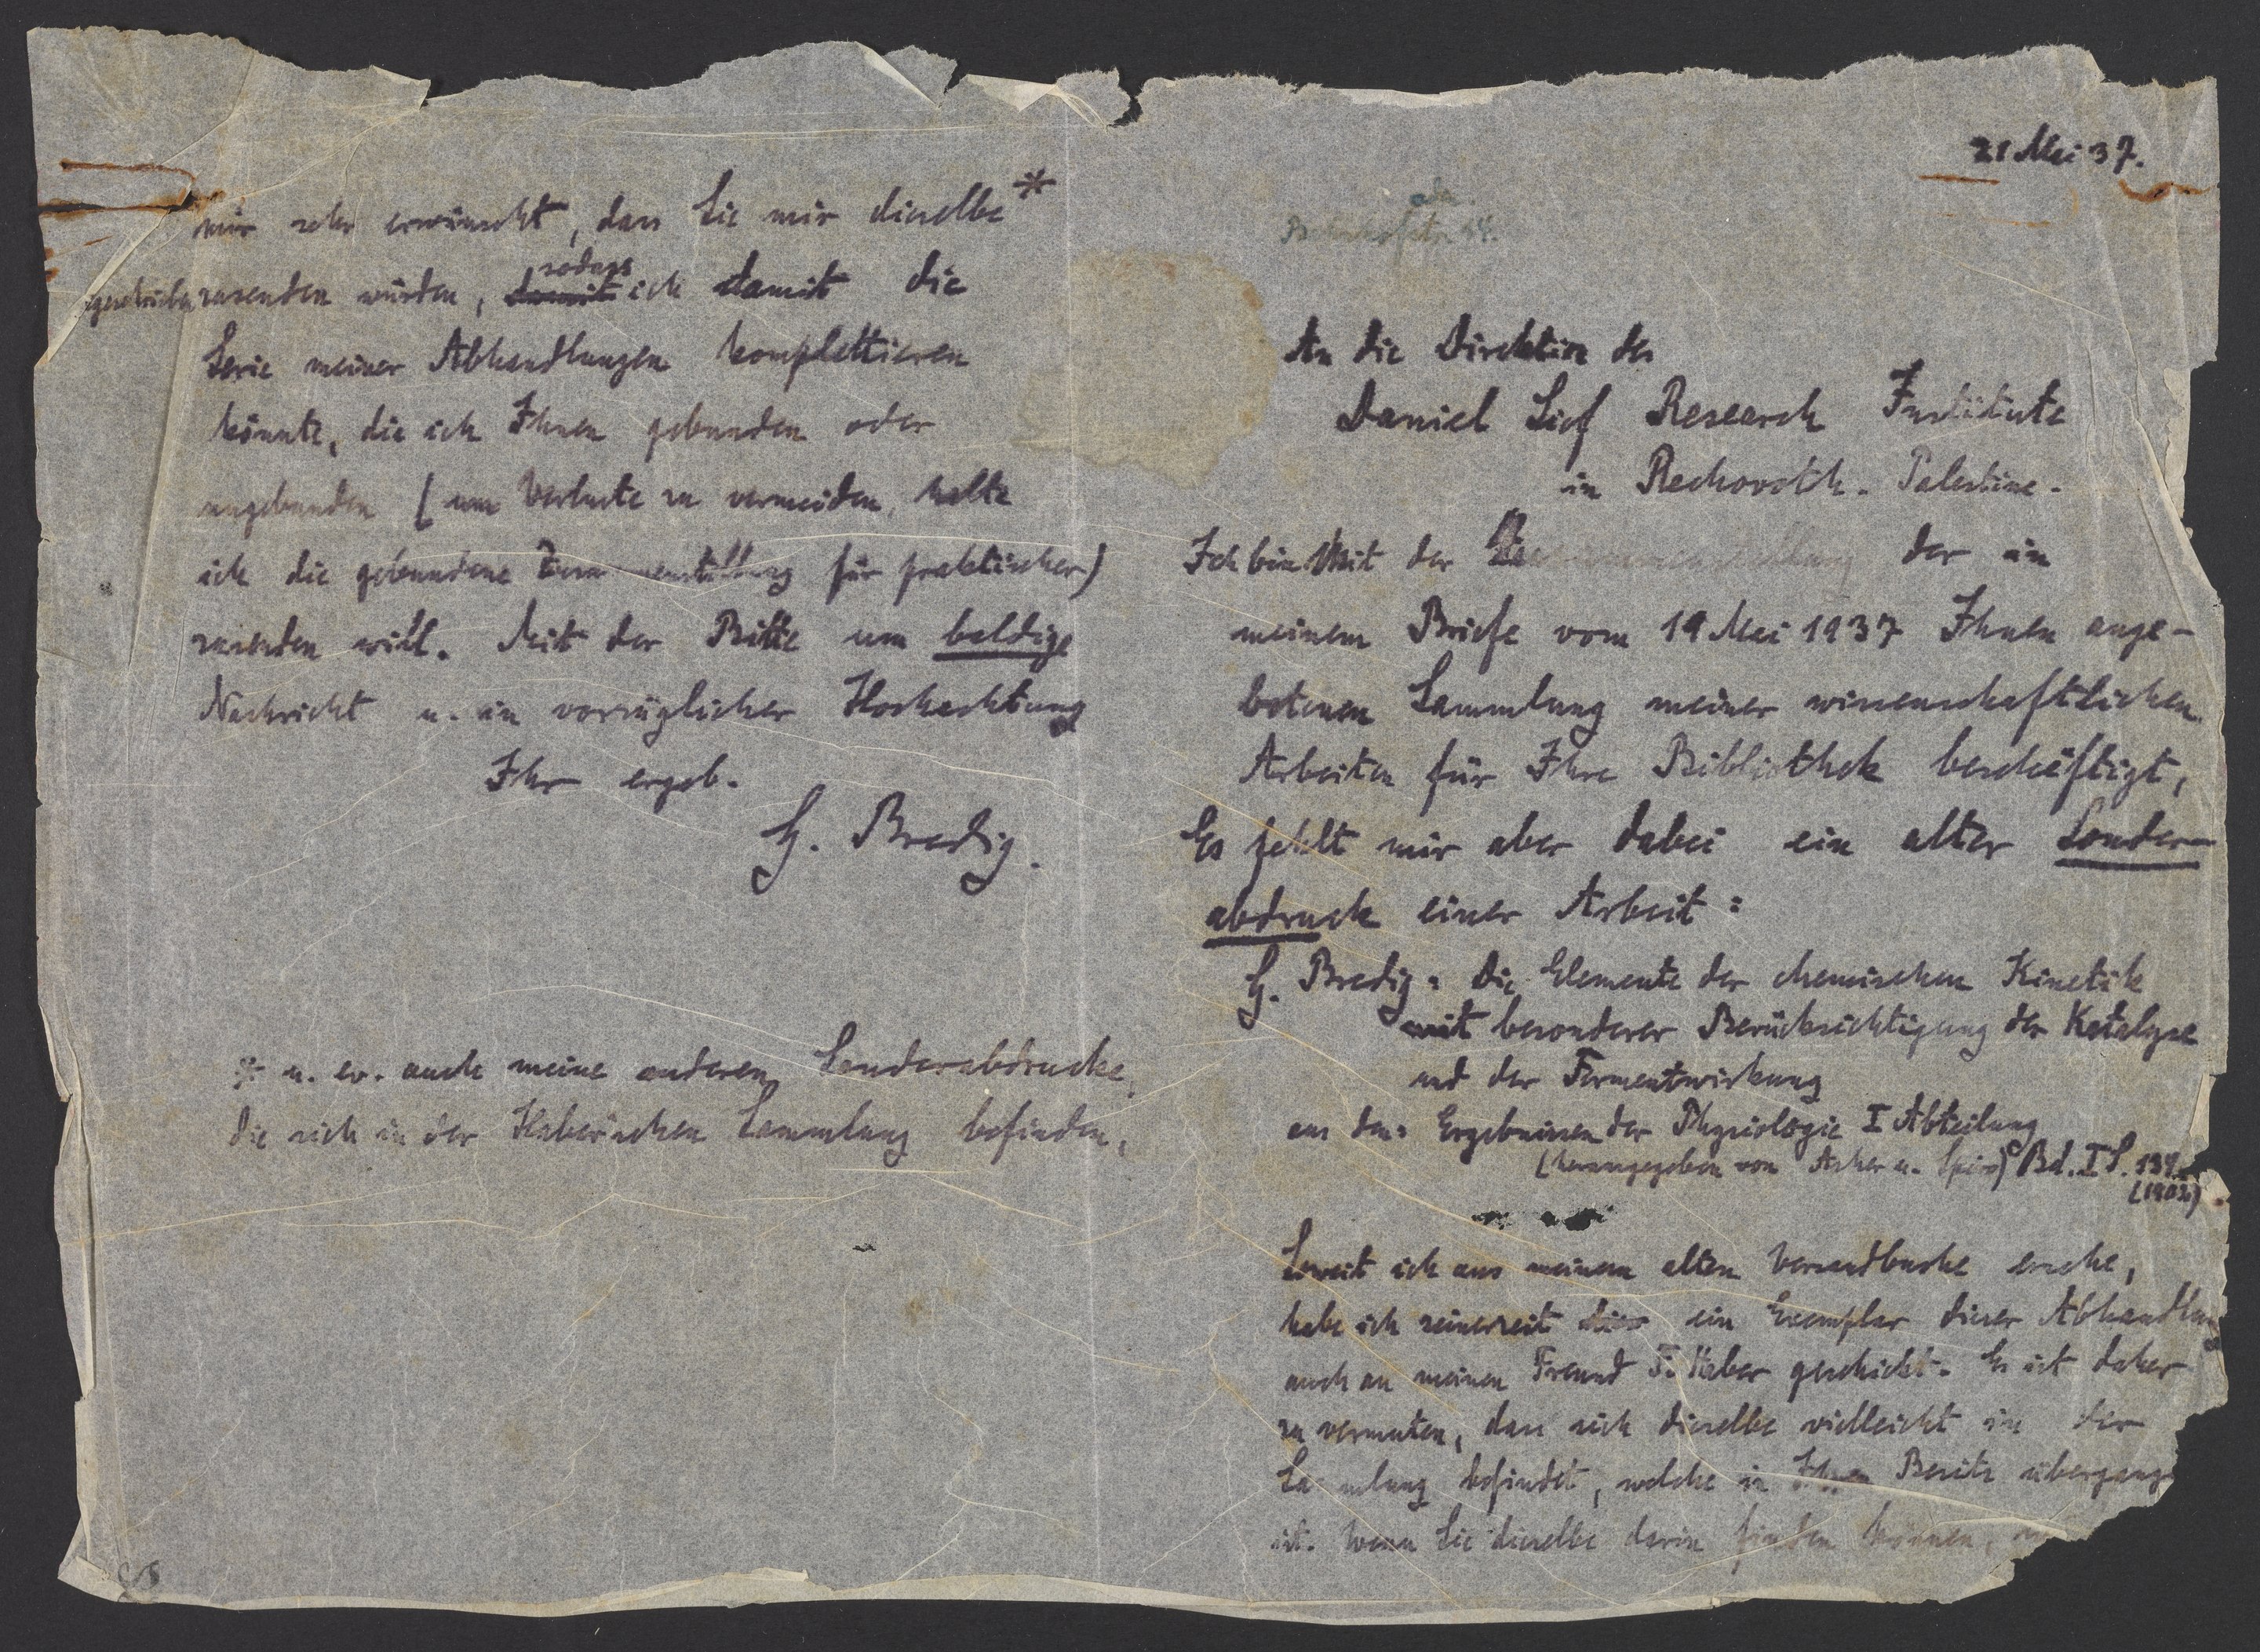 21 Mai 37.
Bahnhofstr. 44.
An die Direktion des
Daniel Sief Research Institute
in Rechovoth. Palestine.
Ich bin Mit der Zusammenstellung der in
meinem Briefe vom 19 Mai 1937 Ihnen ange-
botenen Sammlung meiner wissenschaftlichen
Arbeiten für Ihre Bibliothek beschäftigt,
Es fehlt mir aber dabei ein alter Sonder-
abdruck einer Arbeit:
G. Bredig: Die Elemente der chemischen Kinetik
mit besonderer Berücksichtigung der Katalyse
und der Fermentwirkung
aus den: Ergebnissen der Physiologie I Abteilung
(herausgegeben von Asher u. Spiro) Bd. I S. 134
(1902)
Soweit ich aus meinem alten Versandbuche ersehe,
habe ich seinerzeit ein Exemplar dieser Abhandlung
auch an meinen Freund F. Haber geschickt. Es ist daher
zu vermuten, dass sich dieselbe vielleicht in der
Sammlung befindet, welche in Ihren Besitz übergang
ist. Wenn Sie dieselbe darin finden können,
mir sehr erwünscht, dass Sie mir dieselbe *
zusenden würden, damit sodass ich damit die
Serie meiner Abhandlungen komplettieren
könnte, die ich Ihnen gebunden oder
ungebunden (um Verluste zu vermeiden, halte
ich die gebundene Zusammenstellung für praktischer)
zusenden will. Mit der Bitte um baldige
Nachricht u. in vorzüglicher Hochachtung
Ihr ergeb.
G. Bredig.
* u. ev. auch meine anderen Sonderabdrucke,
die sich in der Haber'schen Sammlung befinden,